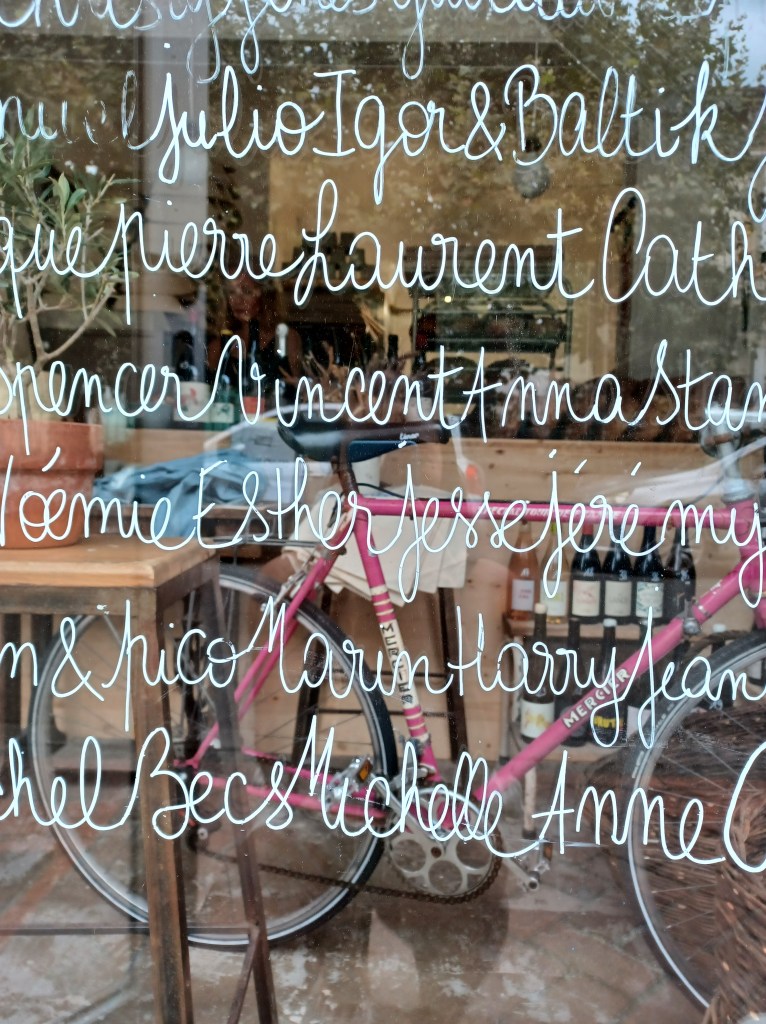 Julio Igor & Baltik
que pierre Laurent Cath
spencer Vincent Anna Stan
Noémie Esther Jesse Jérémy
n & pico Marin Harry Jean
chel Becs Michelle Anne C
MERCIER